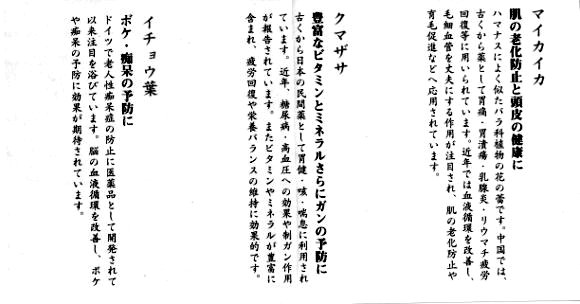 マイカイカ
肌の老化防止と頭皮の健康に
ハマナスによく似たバラ科植物の花の蕾です。中国では、
古くから薬として胃痛・胃潰瘍・乳腺炎・リウマチ疲労
回復等に用いられています。近年では血液循環を改善し、
毛細血管を丈夫にする作用が注目され、肌の老化防止や
育毛促進などへ応用されています。
クマザサ
豊富なビタミンとミネラルさらにガンの予防に
古くから日本の民間薬として胃健・咳・喘息に利用され
ています。近年、糖尿病・高血圧への効果や制ガン作用
が報告されています。またビタミンやミネラルが豊富に
含まれ、疲労回復や栄養バランスの維持に効果的です。
イチョウ葉
ボケ・痴呆の予防に
ドイツで老人性痴呆症の防止に医薬品として開発されて
以来注目を浴びています。脳の血液循環を改善し、ボケ
や痴呆の予防に効果が期待されています。